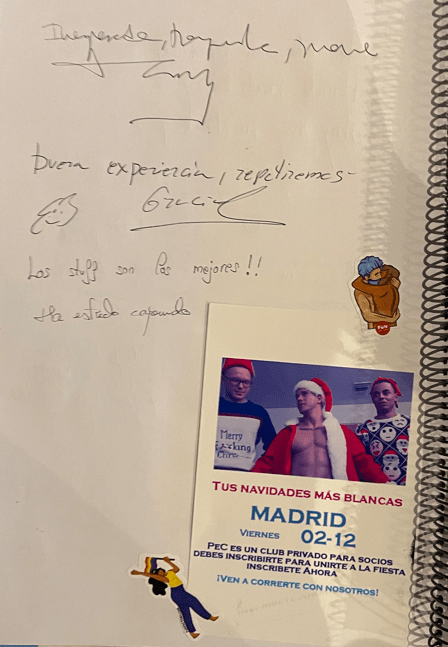 buena experiencia, repetiremos
Gracias
Los stuff son los mejores!!
Ha estado cojonudo
Merry
F*cking
TUS NAVIDADES MÁS BLANCAS
MADRID
VIERNES 02-12
PEC ES UN CLUB PRIVADO PARA SOCIOS
DEBES INSCRIBIRTE PARA UNIRTE A LA FIESTA
INSCRIBETE AHORA
¡VEN A CORRERTE CON NOSOTROS!